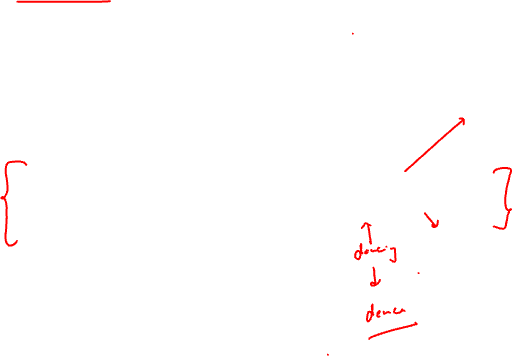 dancing
dance